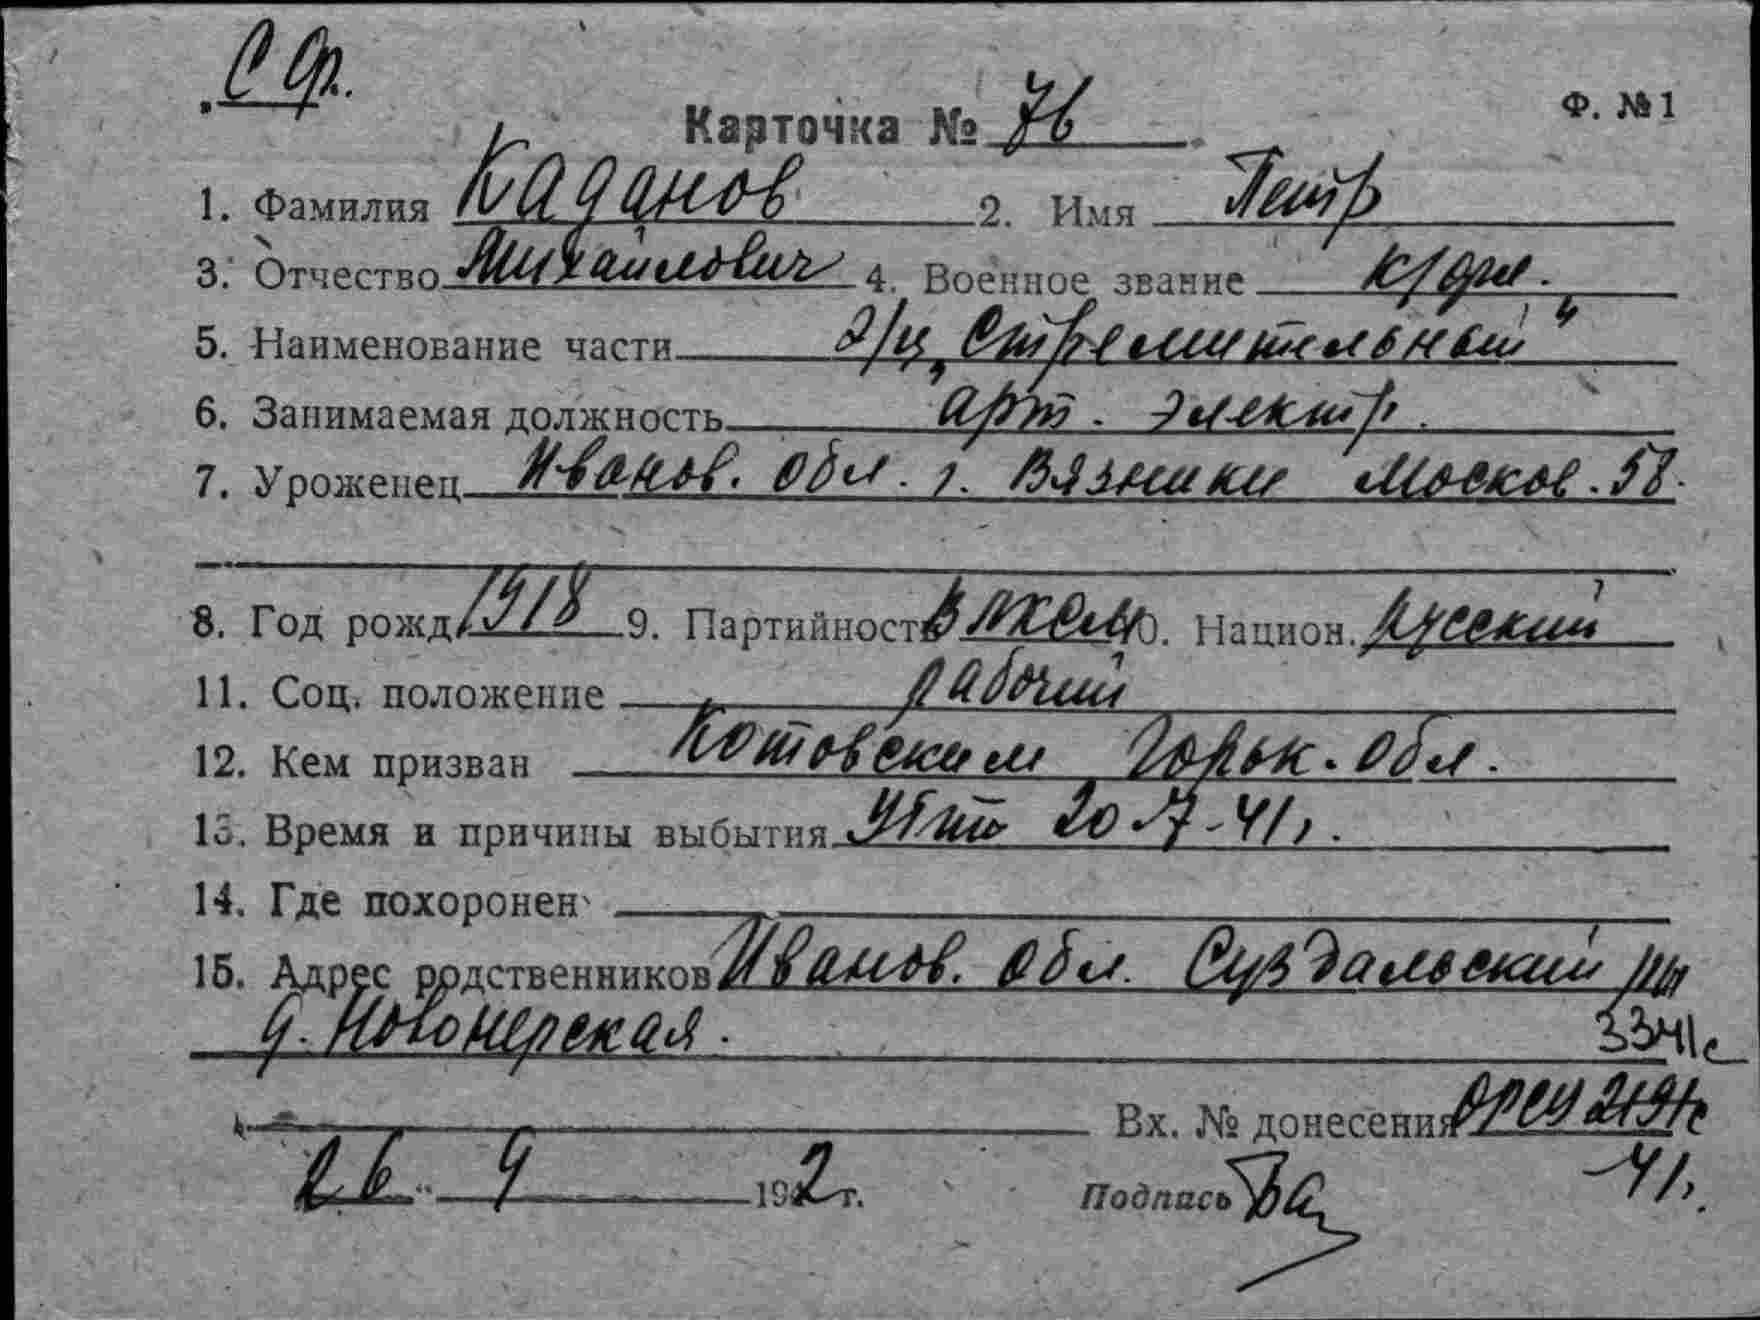 С Ф.
Ф. № 1
Карточка № 76
1. Фамилия Каданов 2. Имя Петр
3. Отчество Михайлович 4. Военное звание к/фл.
5. Наименование части э/м „Стремительный“
6. Занимаемая должность арт. электр.
7. Уроженец Иванов. обл. г. Вязники Москов. 58.
8. Год рожд. 1918 9. Партийность ВЛКСМ 10. Национ. русский
11. Соц. положение рабочий
12. Кем призван Котовским Горьк. обл.
13. Время и причины выбытия Убит 20-7-41г.
14. Где похоронен
15. Адрес родственников Иванов. обл. Суздальский
д. Новонерская.
3341с
Вх. № донесения
41г.
26 9 1942 г. Подпись